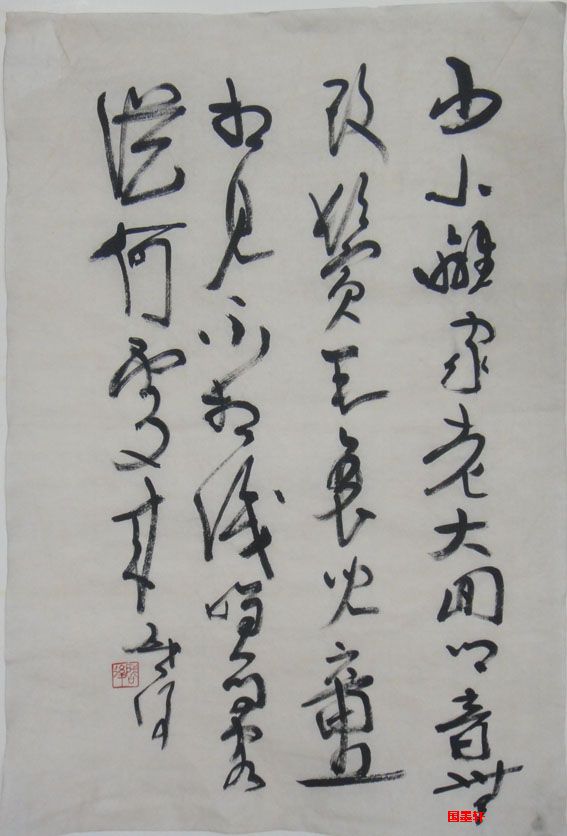 少小離家老大回鄉音無
改鬢毛衰兒童
相見不相識咲問客
從何處來
国墨轩